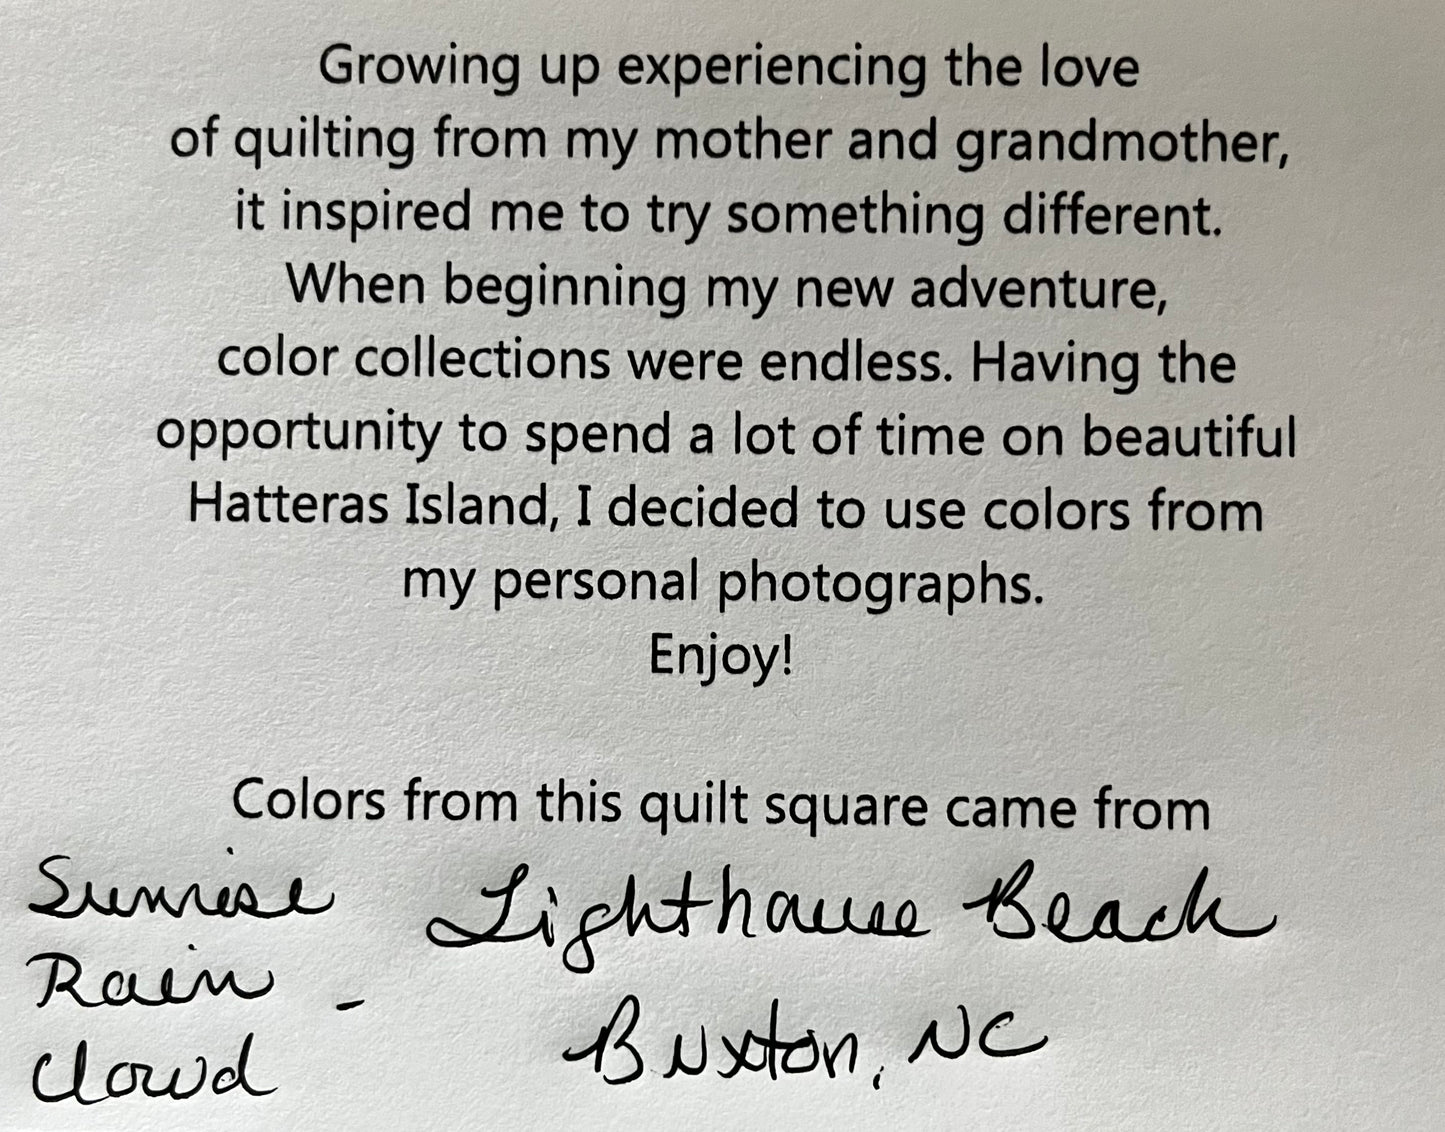 Growing up experiencing the love
of quilting from my mother and grandmother,
it inspired me to try something different.
When beginning my new adventure,
color collections were endless. Having the
opportunity to spend a lot of time on beautiful
Hatteras Island, I decided to use colors from
my personal photographs.
Enjoy!
Colors from this quilt square came from
Sunrise
Rain -
Cloud
Lighthouse Beach
Buxton, NC